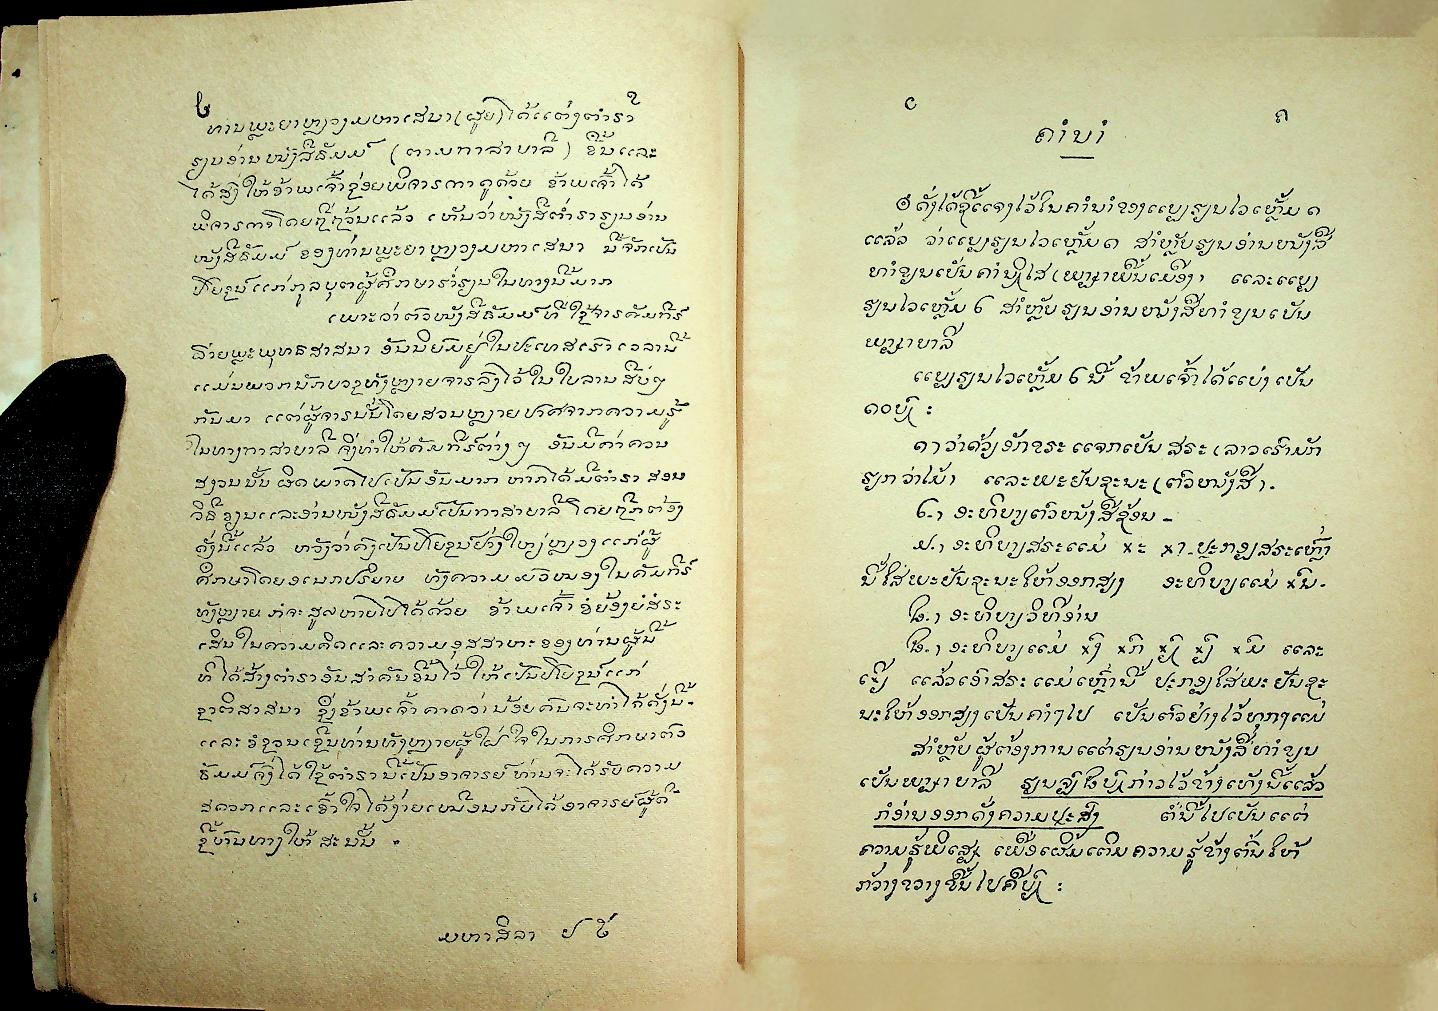 ທ່ານພຼະຍາຫຼວງມຫາເສນາ (ຜູຍ) ໄດ້ແຕ່ງຕຳຣາ
ຮຽນອ່ານໜັງສືຘັມມ໌ (ຕາມກາສາບາລີ) ຂື້ນແລະ
ໄດ້ສົ່ງໃຫ້ຂ້າພເຈົ້າຊ່ອຍພິຈາຣນາດູດ້ວຍ ຂ້າພເຈົ້າໄດ້
ພິຈາຣນາໂດຍຖີ່ຖ້ວນແລ້ວ ເຫັນວ່າໜັງສືຕຳຣາຮຽນອ່ານ
ໜັງສືຘັມມ໌ ຂອງທ່ານພຼະຍາຫຼວງມຫາເສນາ ນີ້ຈັກເປັນ
ປໂຍຊນ໌ແກ່ກຸລບຸຕຜູ້ສຶກສາຮ່ຳຮຽນໃນທາງນີ້ມາກ
ເພາະວ່າຕົວໜັງສືຘັມມ໌ທີ່ໃຊ້ຈາຣຄັມກີຣ໌
ຝ່າຍພຼະພຸທຘສາສນາ ອັນນິຍົມຢູ່ໃນປະເທສເຮົາເວລານີ້
ແມ່ນພວກນັກບວຊທັງຫຼາຍຈາຣລົງໄວ້ໃນໃບລານສືບໆ
ກັນມາ ແຕ່ຜູ້ຈາຣນັ້ນໂດຍສວນຫຼາຍປາສຈາກຄວາມຮູ້
ໃນທາງກາສາບາລີ ຈຶ່ງທຳໃຫ້ຄັມກີຣ໌ຕ່າງໆ ອັນມີຄ່າຄວນ
ສງວນນັ້ນ ຜິດພາດໄປເປັນອັນມາກ ຫາກໄດ້ມີຕຳຣາ ສອນ
ວິຘີຂຽນແລະອ່ານໜັງສືຘັມມ໌ເປັນກາສາບາລີ ໂດຍຖືກຕ້ອງ
ດັ່ງນີ້ແລ້ວ ຫວັງວ່າຄົງເປັນປໂຍຊນ໌ຢ່າງໃຫຍ່ຫຼວງແກ່ຜູ້
ສຶກສາໂດຍອເນກປຣິຍາຍ ທັງຄວາມມົວໝອງໃນຄັມກີຣ໌
ທັງຫຼາຍ ກໍຈະສູລຫາຍໄປໄດ້ດ້ວຍ ຂ້າພເຈົ້າຂໍຍ້ອງຍໍສໍຣະ
ເສິນໃນຄວາມຄິດແລະຄວາມອຸສສາຫະຂອງທ່ານຜູ້ນີ້
ທີ່ໄດ້ສ້າງຕຳຣາອັນສຳຄັນຂຶ້ນໄວ້ ໃຫ້ເປັນປໂຍຊນ໌ແກ່
ຊາຕິສາສນາ ຊຶ່ງຂ້າພເຈົ້າຄາດວ່ານ້ອຍຄົນຈະທຳໄດ້ດັ່ງນີ້.
ແລະຂໍຊວນເຊີນທ່ານທັງຫຼາຍຜູ້ໃຝ່ໃຈໃນການສຶກສາຕົວ
ຘັມມ໌ຈົ່ງໄດ້ໃຊ້ຕຳຣານີ້ເປັນອາຈາຣຍ໌ ທ່ານຈະໄດ້ຮັບຄວາມ
ສດວກແລະເຂົ້າໃຈໄດ້ງ່າຍເໝືອນກັບໄດ້ອາຈາຣຍ໌ຜູ້ດີ
ຊີ້ຫົນທາງໃຫ້ສະນັ້ນ .
ມຫາສິລາ
ຄຳນຳ
ດັ່ງໄດ້ຊີ້ແຈງໄວ້ໃນຄຳນຳຂອງແບບຮຽນໄວເຫຼັ້ມ ໑
ແລ້ວ ວ່າແບບຮຽນໄວເຫຼັ້ມ ໑ ສຳຫຼັບຮຽນອ່ານໜັງສື
ທຳຂຽນເປັນຄຳນິໃສ (ພາສາພື້ນເມືອງ) ແລະແບບ
ຮຽນໄວເຫຼັ້ມ ໒ ສຳຫຼັບຮຽນອ່ານໜັງສືທຳຂຽນເປັນ
ພາສາບາລີ
ແບບຮຽນໄວເຫຼັ້ມ ໒ ນີ້ ຂ້າພເຈົ້າໄດ້ແບ່ງເປັນ
໑໐ບົດ :
໑) ວ່າດ້ວຍອັກຂຣະ ແຈກເປັນ ສຣະ (ລາວເຮົາມັກ
ຮຽກວ່າໄມ້) ແລະພະຍັນຊະນະ (ຕົວໜັງສື).
໒.) ອະທິບາຍຕົວໜັງສືຊ້ອນ.
໓.) ອະທິບາຍສຣະແມ່ xະ xາ. ປະກອບສຣະເຫຼົ່າ
ນີ້ໃສ່ພະຍັນຊະນະໃຫ້ອອກສຽງ ອະທິບາຍແມ່ xົນ.
໔.) ອະທິບາຍວິທີອ່ານ
໕.) ອະທິບາຍແມ່ xົງ xົກ xົດ xົບ xົມ ແລະ
ເxີຍ ແລ້ວເອົາສຣະແມ່ເຫຼົ່ານີ້ ປະກອບໃສ່ພະຍັນຊະ
ນະໃຫ້ອອກສຽງເປັນຄຳໆໄປ ເປັນຕົວຢ່າງໄວ້ທຸກໆແມ່
ສຳຫຼັບຜູ້ຕ້ອງການແຕ່ຮຽນອ່ານໜັງສືທຳຂຽນ
ເປັນພາສາບາລີ ຮຽນຈົບ ໕ ບົດກ່າວໄວ້ຂ້າງເທິງນີ້ແລ້ວ
ກໍອ່ານອອກດັ່ງຄວາມປະສົງ ຕໍ່ນີ້ໄປເປັນແຕ່
ຄວາມຮູ້ພິເສດ ເພື່ອເພີ້ມເຕີມຄວາມຮູ້ຂ້າງຕົ້ນໃຫ້
ກວ້າງຂວາງຂື້ນໄປຄືບົດ :